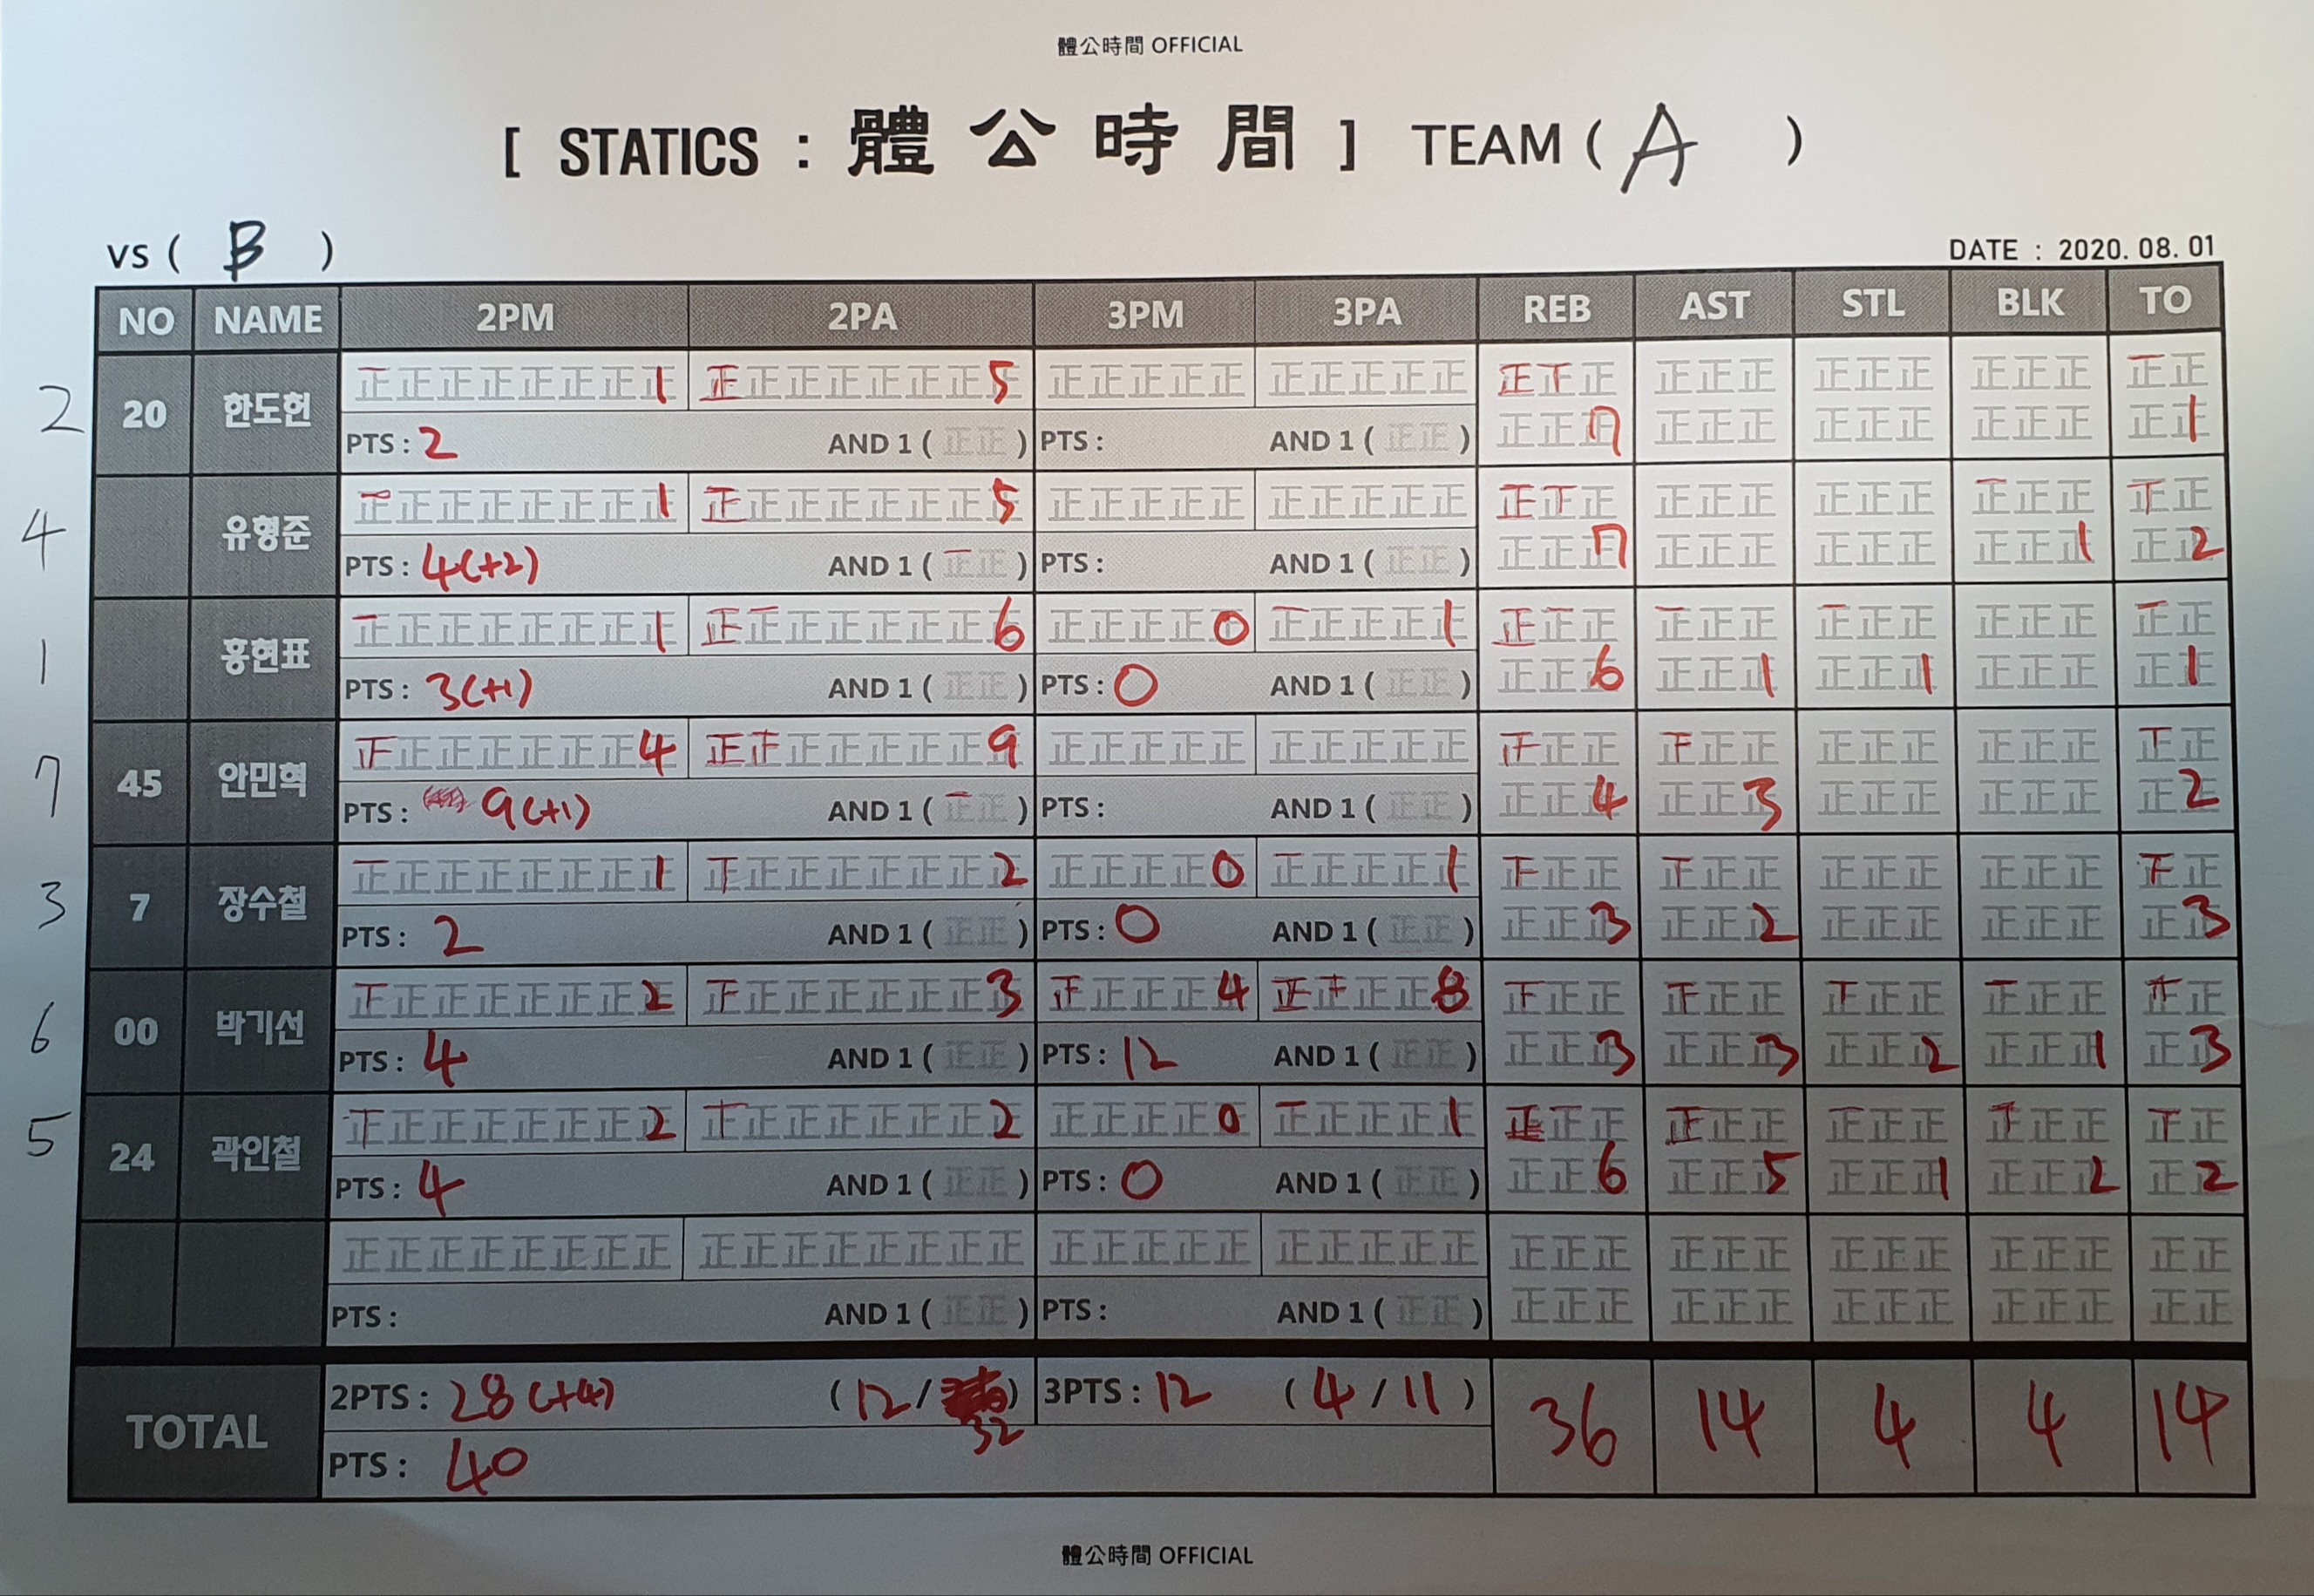 體公時間 OFFICIAL
[ STATICS : 體公時間 ] TEAM ( A )
vs ( B )
DATE : 2020. 08. 01
NO NAME 2PM 2PA 3PM 3PA REB AST STL BLK TO
2 20 한도헌 正正正正正正正正 1 正正正正正正正正 5 正正正正正 正正正正正 正正正 正正正 正正正 正正正 正正
PTS : 2 AND 1 ( 正正 ) PTS : AND 1 ( 正正 ) 正正正 7 正正正 正正正 正正正 正正 1
4 유형준 正正正正正正正正 1 正正正正正正正正 5 正正正正正 正正正正正 正正正 正正正 正正正 正正正 正正
PTS : 4(+2) AND 1 ( 正正 ) PTS : AND 1 ( 正正 ) 正正正 7 正正正 正正正 正正正 1 正正 2
1 홍현표 正正正正正正正正 1 正正正正正正正正 6 正正正正正 0 正正正正正 1 正正正 正正正 正正正 正正正 正正
PTS : 3(+1) AND 1 ( 正正 ) PTS : 0 AND 1 ( 正正 ) 正正正 6 正正正 1 正正正 1 正正正 正正 1
7 45 안민혁 正正正正正正正正 4 正正正正正正正正 9 正正正正正 正正正正正 正正正 正正正 正正正 正正正 正正
PTS : 9(+1) AND 1 ( 正正 ) PTS : AND 1 ( 正正 ) 正正正 4 正正正 3 正正正 正正正 正正 2
3 7 장수철 正正正正正正正正 1 正正正正正正正正 2 正正正正正 0 正正正正正 1 正正正 正正正 正正正 正正正 正正
PTS : 2 AND 1 ( 正正 ) PTS : 0 AND 1 ( 正正 ) 正正正 3 正正正 2 正正正 正正正 正正 3
6 00 박기선 正正正正正正正正 2 正正正正正正正正 3 正正正正正 4 正正正正正 8 正正正 正正正 正正正 正正正 正正
PTS : 4 AND 1 ( 正正 ) PTS : 12 AND 1 ( 正正 ) 正正正 3 正正正 3 正正正 2 正正正 1 正正 3
5 24 곽인철 正正正正正正正正 2 正正正正正正正正 2 正正正正正 0 正正正正正 1 正正正 正正正 正正正 正正正 正正
PTS : 4 AND 1 ( 正正 ) PTS : 0 AND 1 ( 正正 ) 正正正 6 正正正 5 正正正 1 正正正 2 正正 2
正正正正正正正正 正正正正正正正正 正正正正正 正正正正正 正正正 正正正 正正正 正正正 正正
PTS : AND 1 ( 正正 ) PTS : AND 1 ( 正正 ) 正正正 正正正 正正正 正正正 正正
TOTAL 2PTS : 28(+4) ( 12 / 32 ) 3PTS : 12 ( 4 / 11 ) 36 14 4 4 14
PTS : 40
體公時間 OFFICIAL